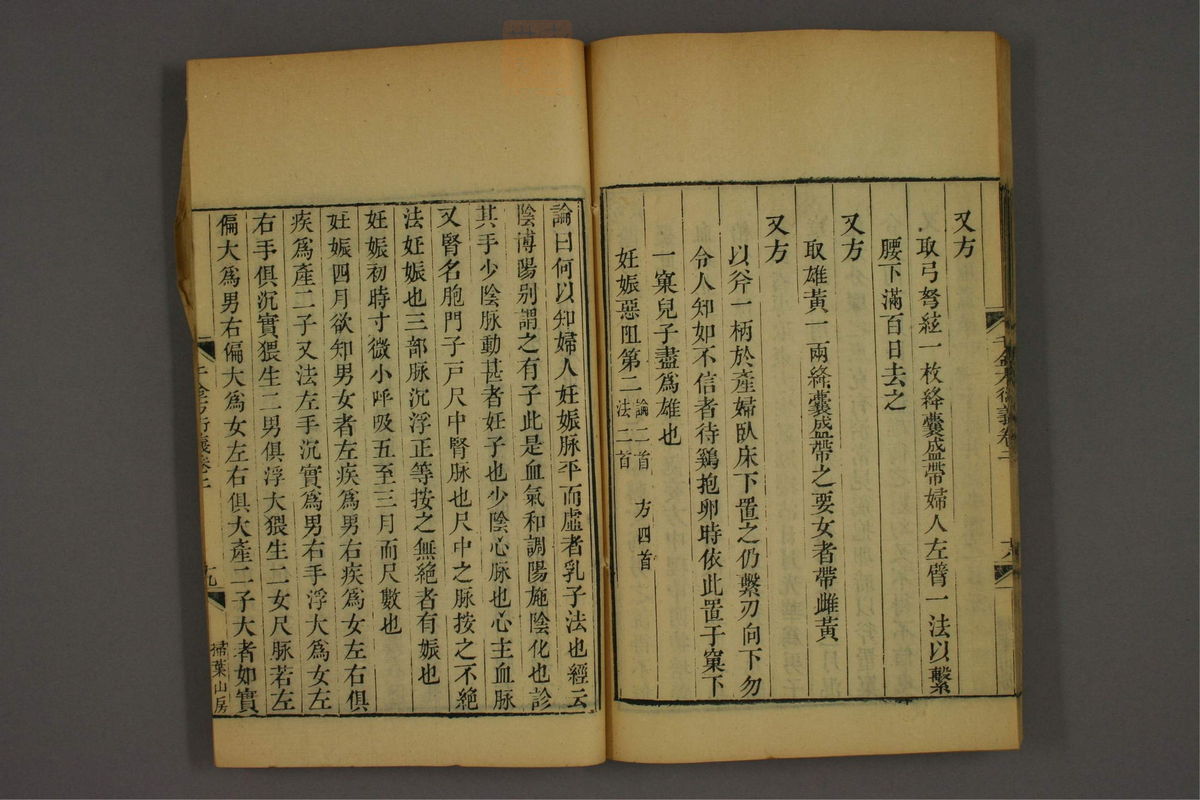 又方
取弓弩絃一枚絳囊盛帶婦人左臂一法以繫
腰下滿百日去之
又方
取雄黃一兩絳囊盛帶之要女者帶雌黃
又方
以斧一柄於產婦臥床下置之仍繫刃向下勿
令人知如不信者待鷄抱卵時依此置于窠下
一窠兒子盡爲雄也
妊娠惡阻第二 論二首 法二首 方四首
論曰何以知婦人妊娠脉平而虛者乳子法也經云
陰博陽別謂之有子此是血氣和調陽施陰化也診
其手少陰脉動甚者妊子也少陰心脉也心主血脉
又腎名胞門子戸尺中腎脉也尺中之脉按之不絶
法妊娠也三部脉沉浮正等按之無絶者有娠也
妊娠初時寸微小呼吸五至三月而尺數也
妊娠四月欲知男女者左疾爲男右疾爲女左右俱
疾爲產二子又法左手沉實爲男右手浮大爲女左
右手俱沉實猥生二男俱浮大猥生二女尺脉若左
偏大爲男右偏大爲女左右俱大產二子大者如實
千金方衍義卷二
十九
掃葉山房